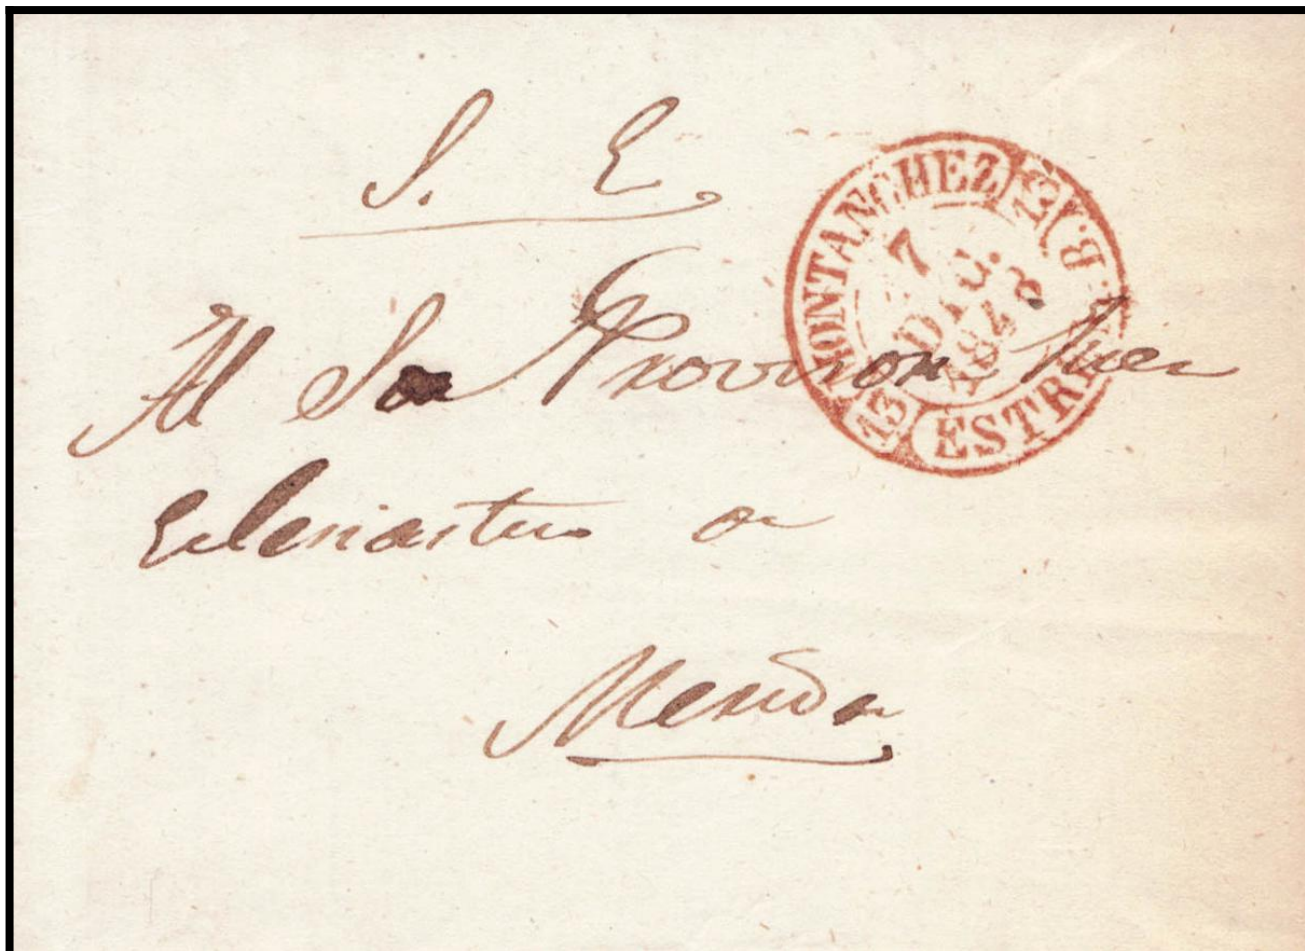 S. E.
MONTANCHEZ
7
DIC.
184
ESTR. B.
13
Al Sor Provisor Juez
Eclesiastico de
Merida